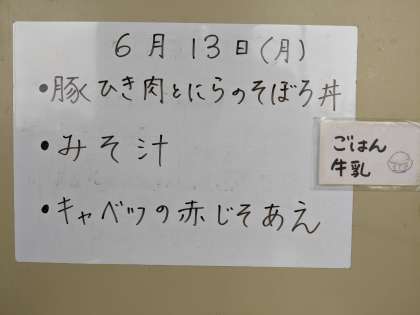 6月13日(月)
・豚ひき肉とにらのそぼろ丼
・みそ汁
・キャベツの赤じそあえ
ごはん
牛乳